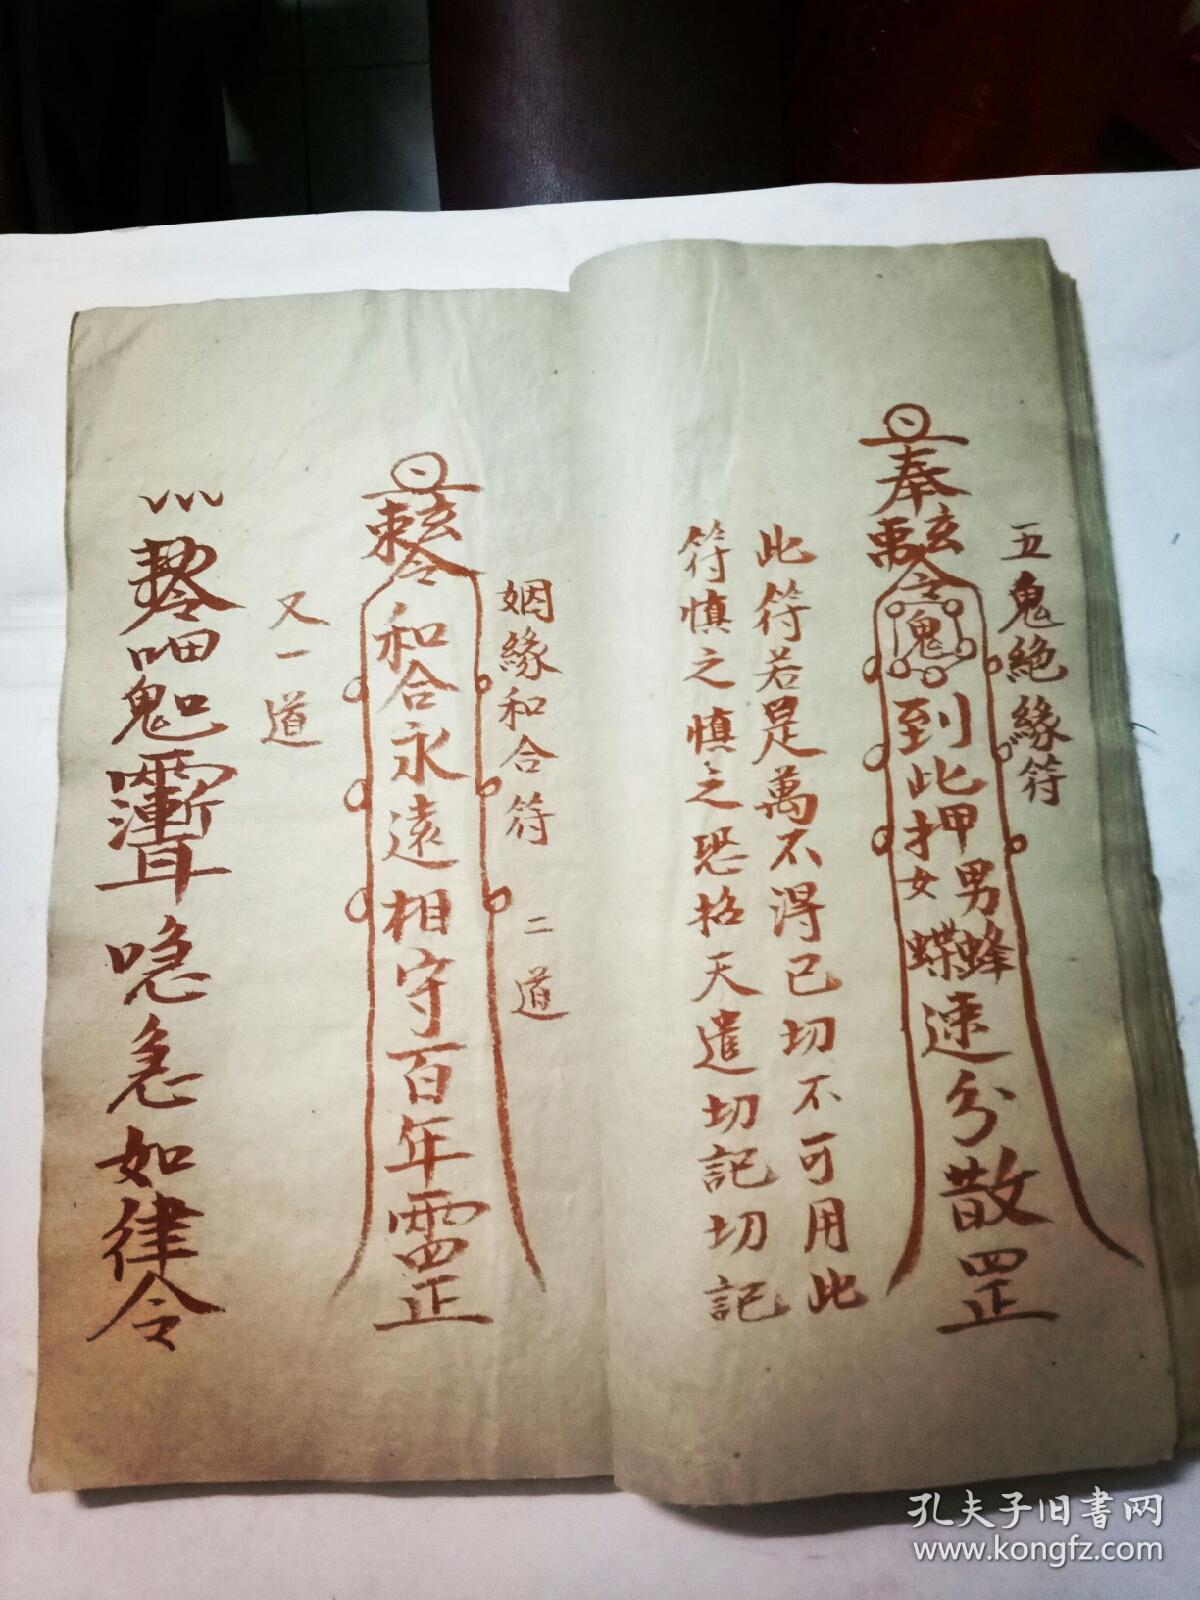 五鬼絶緣符
奉
令
鬼
到此押
男蜂
女蝶
速分散罡
此符若是萬不得已切不可用此
符慎之慎之恐招天遣切記切記
姻緣和合符 二道
令
和合永遠相守百年罡
又一道
急如律令
孔夫子旧书网
www.kongfz.com